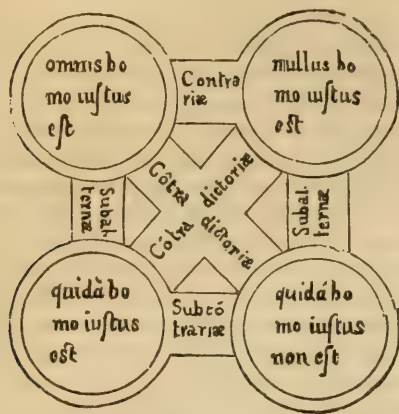 omnis ho
mo iuſtus
eſt
Contra
riæ
nullus ho
mo iuſtus
eſt
Subal-
ternæ
Côtra dictoriæ
Côtra dictoriæ
Subal-
ternæ
quidà ho
mo iuſtus
eſt
Subcó
trariæ
quidá ho
mo iuſtus
non eſt